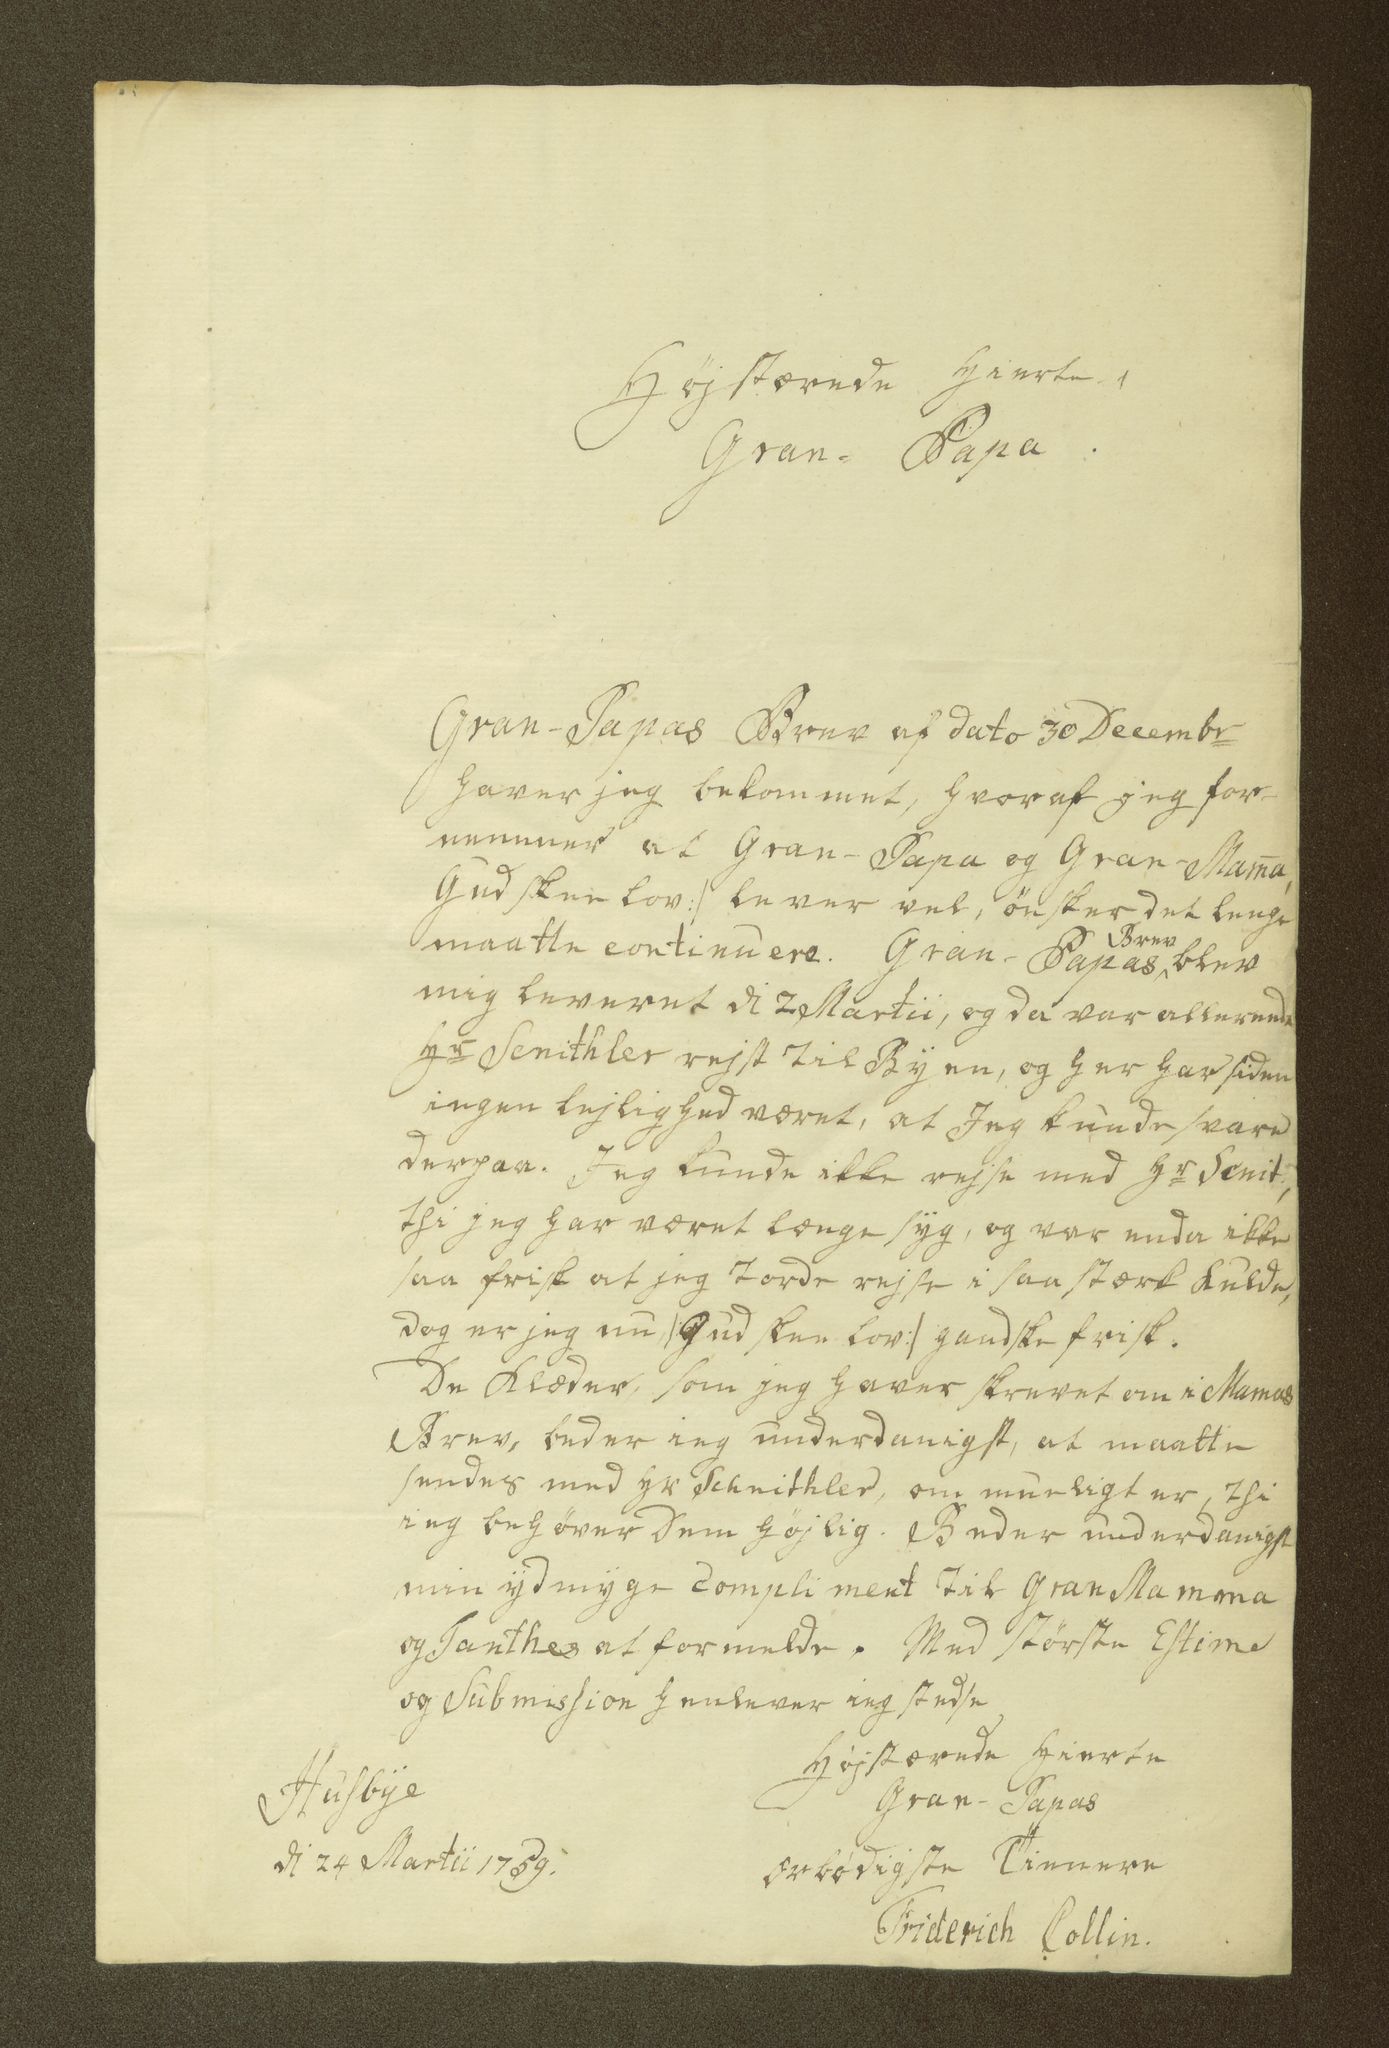 Højstærede Hierte
Gran-Papa.
Gran-Papas Brev af dato 30 Decembr
haver jeg bekommet, hvoraf jeg for-
nemmer at Gran-Papa og Gran-Mama,
Gud skee lov:/ lever vel, önsker det lenge
maatte continuere. Gran-Papas Brev blev
mig leveret di 2 Martii, og da var allerende
Hr Senithler rejst til Byen, og her har siden
ingen lejlighed været, at Jeg kunde svare
derpaa. Jeg kunde ikke rejse med Hr Senit:,
thi jeg har været længe syg, og var enda ikke
saa frisk at jeg torde rejse i saa stærk Kulde,
dog er jeg nu /:Gud skee lov:/ gandske frisk.
De Klæder, som jeg haver skrevet om i Mamas
Brev, beder ieg underdanigst, at maatte
sendes med Hr Scheithler, om mueligt er, thi
ieg behøver Dem højlig. Beder underdanigst
min ydmyge Compliment til Gran Mamma
og Tanthes at formelde. Med störste Estime
og Submission henlever ieg stedse
Højstærede Hierte
Gran-Papas
Husbye
di 24 Martii 1759.
ærbödigste Tienere
Friderich Collin.